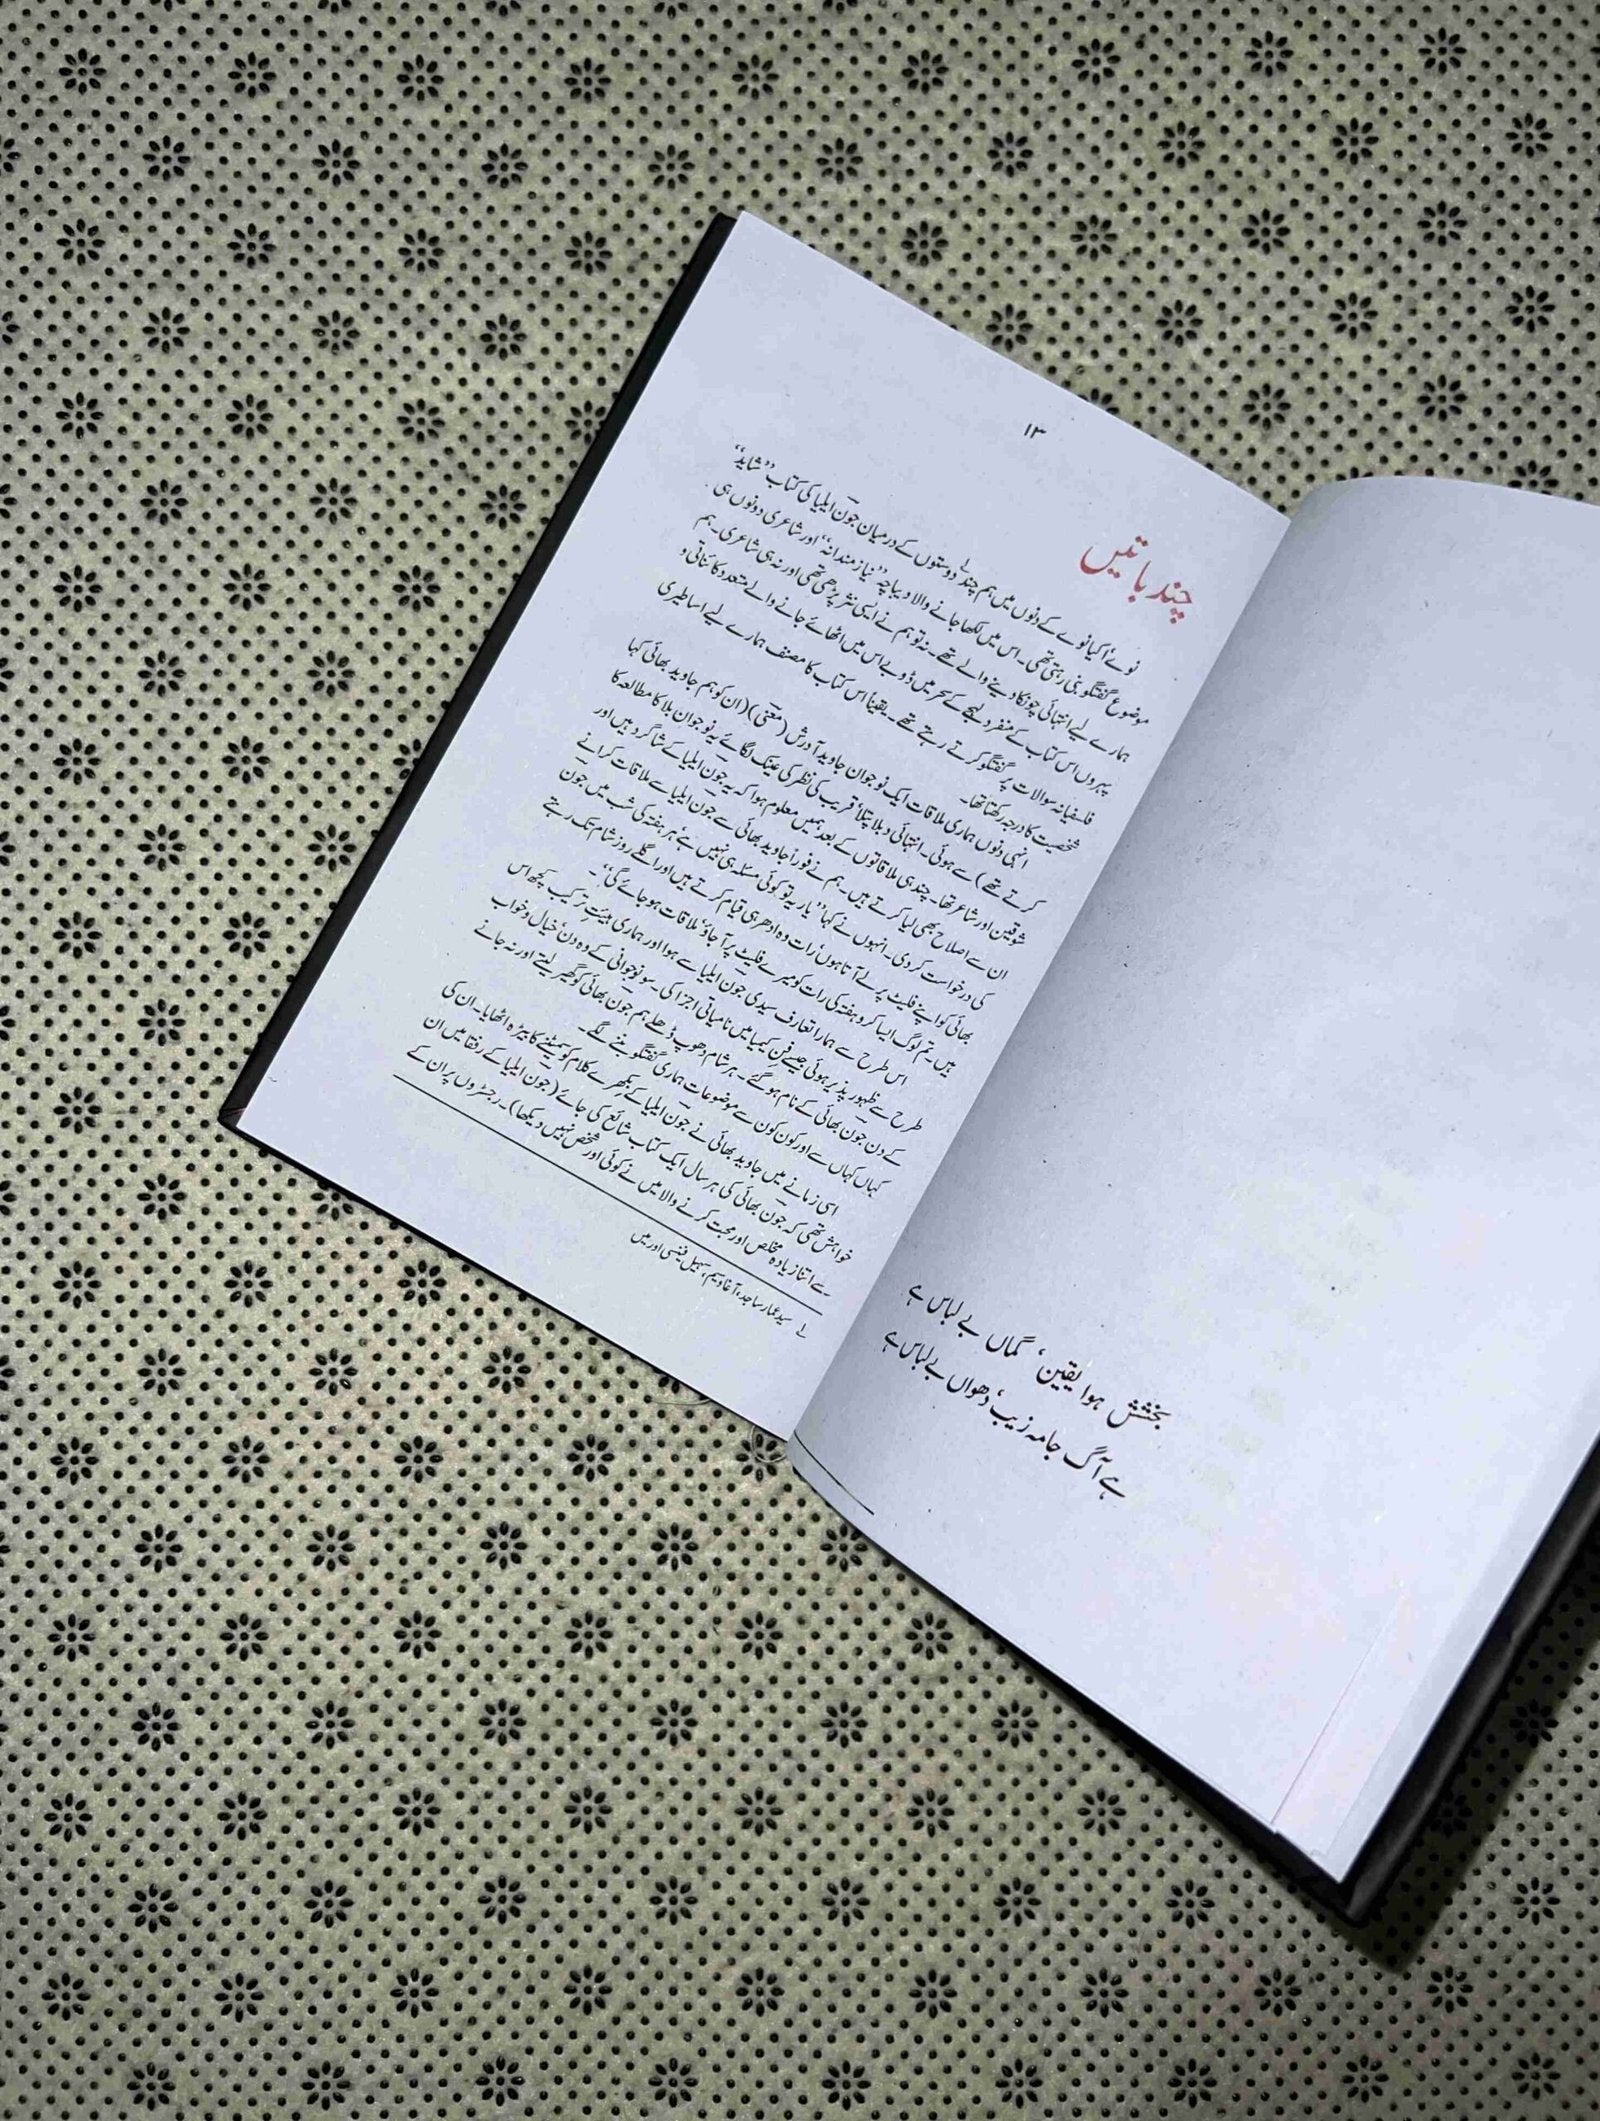 بخشش ہوا یقین، گماں بے لباس ہے
ہے آگ جامہ زیب، دھواں بے لباس ہے
۱۳
چند باتیں
نوے اکیانوے کے دنوں میں ہم چند لے دوستوں کے درمیان جون ایلیا کی کتاب ”شاید“
موضوع گفتگو بنی رہتی تھی۔ اس میں لکھا جانے والا دیباچہ ”نیازمندانہ“ اور شاعری دونوں ہی
ہمارے لیے انتہائی چونکا دینے والے تھے۔ نہ تو ہم نے ایسی نثر پڑھی تھی اور نہ ہی شاعری۔ ہم
پہروں اس کتاب کے منفرد لہجے کے سحر میں ڈوبے اس میں اٹھائے جانے والے متعدد کائناتی و
فلسفیانہ سوالات پر گفتگو کرتے رہتے تھے۔ یقیناً اس کتاب کا مصنف ہمارے لیے اساطیری
شخصیت کا درجہ رکھتا تھا۔
انہی دنوں ہماری ملاقات ایک نوجوان جاوید آدرش (معنی) (ان کو ہم جاوید بھائی کہا
کرتے تھے) سے ہوئی۔ انتہائی دبلا پتلا، قریب کی نظر کی عینک لگائے یہ نوجوان بلا کا مطالعہ کا
شوقین اور شاعر تھا۔ چند ہی ملاقاتوں کے بعد ہمیں معلوم ہوا کہ یہ جون ایلیا کے شاگرد ہیں اور
ان سے اصلاح بھی لیا کرتے ہیں۔ ہم نے فوراً جاوید بھائی سے جون ایلیا سے ملاقات کرانے
کی درخواست کر دی۔ انہوں نے کہا ”یار یہ تو کوئی مسئلہ ہی نہیں ہے، ہر ہفتہ کی شب میں جون
بھائی کو اپنے فلیٹ پر لے آتا ہوں، رات وہ ادھر ہی قیام کرتے ہیں اور اگلے روز شام تک رہتے
ہیں۔ تم لوگ ایسا کرو ہفتہ کی رات کو میرے فلیٹ پر آ جاؤ، ملاقات ہو جائے گی“۔
اس طرح سے ہمارا تعارف سیدی جون ایلیا سے ہوا اور ہماری ہیئتِ ترکیب کچھ اس
طرح سے ظہور پذیر ہوئی جیسے فنِ کیمیا میں نامیاتی اجزا کی۔ سو نوجوانی کے وہ دن، خیال و خواب
کے دن جون بھائی کے نام ہو گئے۔ ہر شام دھوپ ڈھلے ہم جون بھائی کو گھیر لیتے اور نہ جانے
کہاں کہاں سے اور کون کون سے موضوعات ہماری گفتگو بننے لگے۔
اسی زمانے میں جاوید بھائی نے جون ایلیا کے بکھرے کلام کو سمیٹنے کا بیڑہ اٹھایا۔ ان کی
خواہش تھی کہ جون بھائی کی ہر سال ایک کتاب شائع کی جائے (جون ایلیا کے رفقا میں ان
سے اتنا زیادہ مخلص اور محبت کرنے والا میں نے کوئی اور شخص نہیں دیکھا)۔ رجسٹروں پر ان کے
لے سید عمار ساجد، آغا ندیم، سہیل نفیسی اور میں